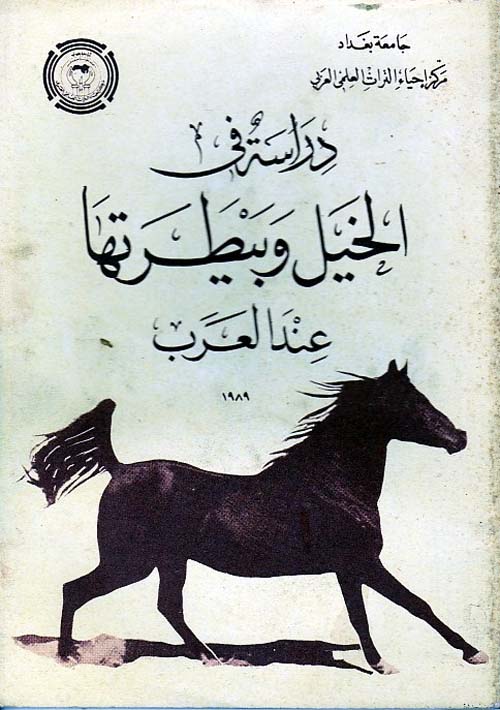 جامعة بغداد
مركز إحياء التراث العلمي العربي
دِرَاسَةٌ في
الخَيْل وَبَيْطَرَتها
عِنْدَ العَرَب
١٩٨٩